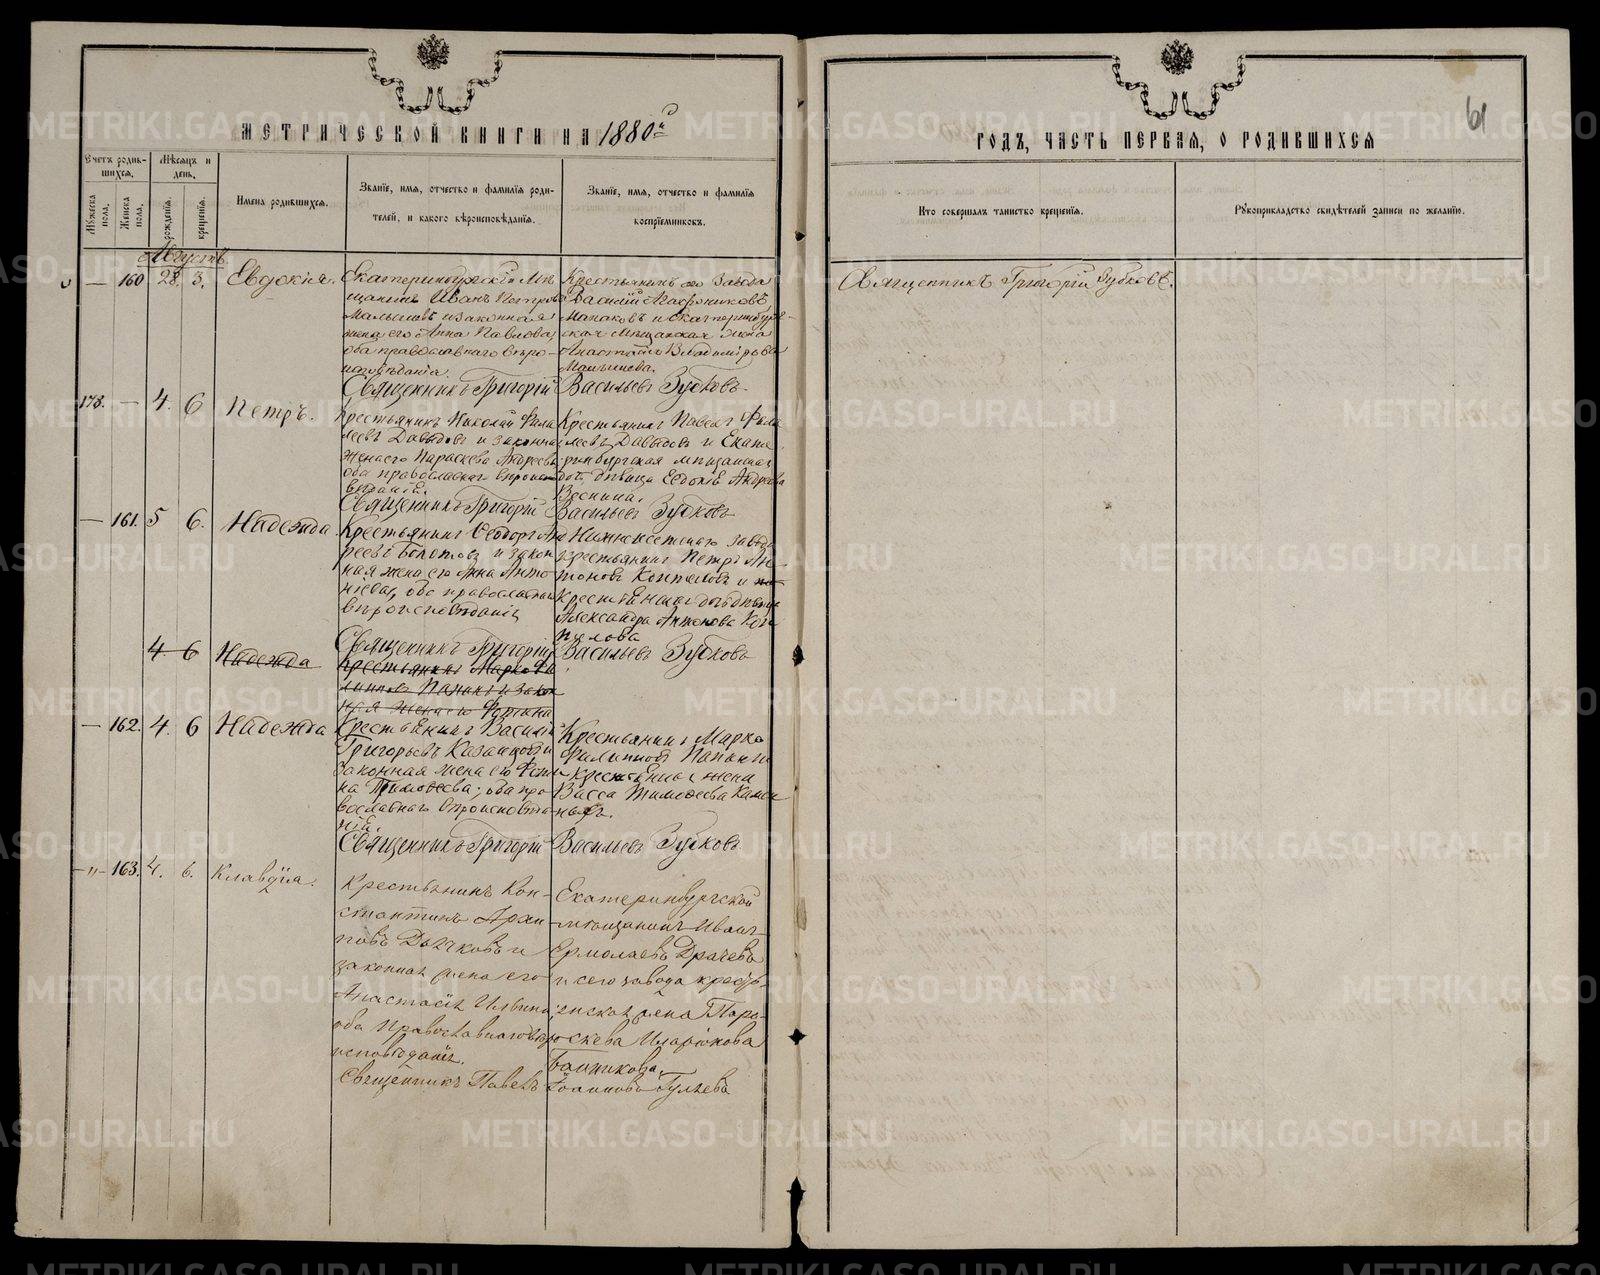 МЕТРИЧЕСКОЙ КНИГИ НА 1880й
ГОДЪ, ЧАСТЬ ПЕРВАЯ, О РОДИВШИХСЯ
61
Счетъ родившихся.
Мѣсяцъ и день.
Мужеска пола.
Женска пола.
рожденія.
крещенія.
Имена родившихся.
Званіе, имя, отчество и фамилія родителей, и какого вѣроисповѣданія.
Званіе, имя, отчество и фамилія воспріемниковъ.
Кто совершалъ таинство крещенія.
Рукоприкладство свидѣтелей записи по желанію.
Августъ
— 160 28. 3. Евдокія.
Екатеринбургскій мѣ
щанинъ Иванъ Петровъ
Малышевъ и законная
жена его Анна Павлова,
оба православнаго вѣро-
исповѣданія.
Крестьянинъ завода
Василій Агафониковъ
и Екатеринбург-
ская мѣщанская жена
Анастасія Владимірова
Малышева.
Священникъ Григорій Зубковъ.
Священникъ Григорій Васильевъ Зубковъ
178. — 4. 6 Петръ.
Крестьянинъ Николай Фила
леевъ Давыдовъ и законна
жена его Параскева Андреева
оба православнаг вѣроиспо
вѣданія.
Крестьянинъ Павелъ Фила
леевъ Давыдовъ и Екате
ринбургская мѣщанская
доч. дѣвица Евдокія Андреева
Веснина.
Священникъ Григорій Васильевъ Зубковъ
— 161. 5 6. Надежда
Крестьянинъ Ѳеодоръ Анд
реевъ Болотовъ и закон
ная жена его Анна Анто
ніева, оба православнаг
вѣроисповѣданія
Нижнеисетскаго завода
крестьянинъ Петръ Ан-
тоновъ Коптеловъ и
крестьянская дочь дѣвица
Александра Антонова Коп
телова
Священникъ Григорій Васильевъ Зубковъ
4 6 Надежда
Крестьянинъ Марко Фи
липповъ Папанъ и закон
ная жена его
— 162. 4. 6 Надежда
Крестьянинъ Василій
Григорьевъ Казанцовъ и
законная жена его
на Тимоѳеева, оба пра
вославнаг вѣроисповѣда
нія.
Крестьянинъ Марко
Филипповъ Папанъ и
крестьянская жена
Васса Тимоѳеева
Священникъ Григорій Васильевъ Зубковъ
—"— 163. 4. 6. Клавдія.
Крестьянинъ Кон-
стантинъ Архи
повъ Дьячковъ и
законная жена его
Анастасія Ильина,
оба Православнаго вѣро
исповѣданія.
Екатеринбургской
мѣщанинъ Иванъ
Ермолаевъ Драчевъ
и сего завода кресть
янская жена Пара-
скева Иларіонова
Банникова.
Священникъ Павелъ Іоанновъ Гуляевъ
METRIKI.GASO-URAL.RU